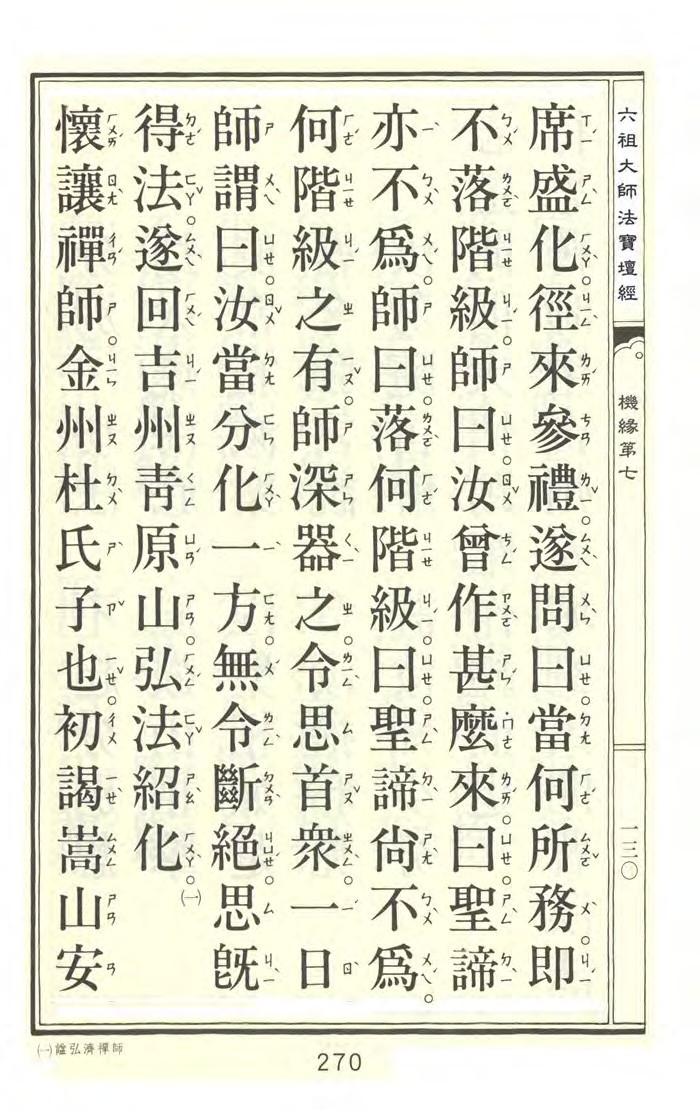 六祖大師法寶壇經
機緣第七
一三〇
席盛化。徑來參禮。遂問曰。當何所務。即
不落階級。師曰。汝曾作甚麼來。曰。聖諦
亦不為。師曰。落何階級。曰。聖諦尙不為。
何階級之有。師深器之。令思首衆。一日
師謂曰。汝當分化一方。無令斷絕。思旣
得法。遂回吉州青原山。弘法紹化。㈠
懷讓禪師。金州杜氏子也。初謁嵩山安
㈠諡弘濟禪師
270